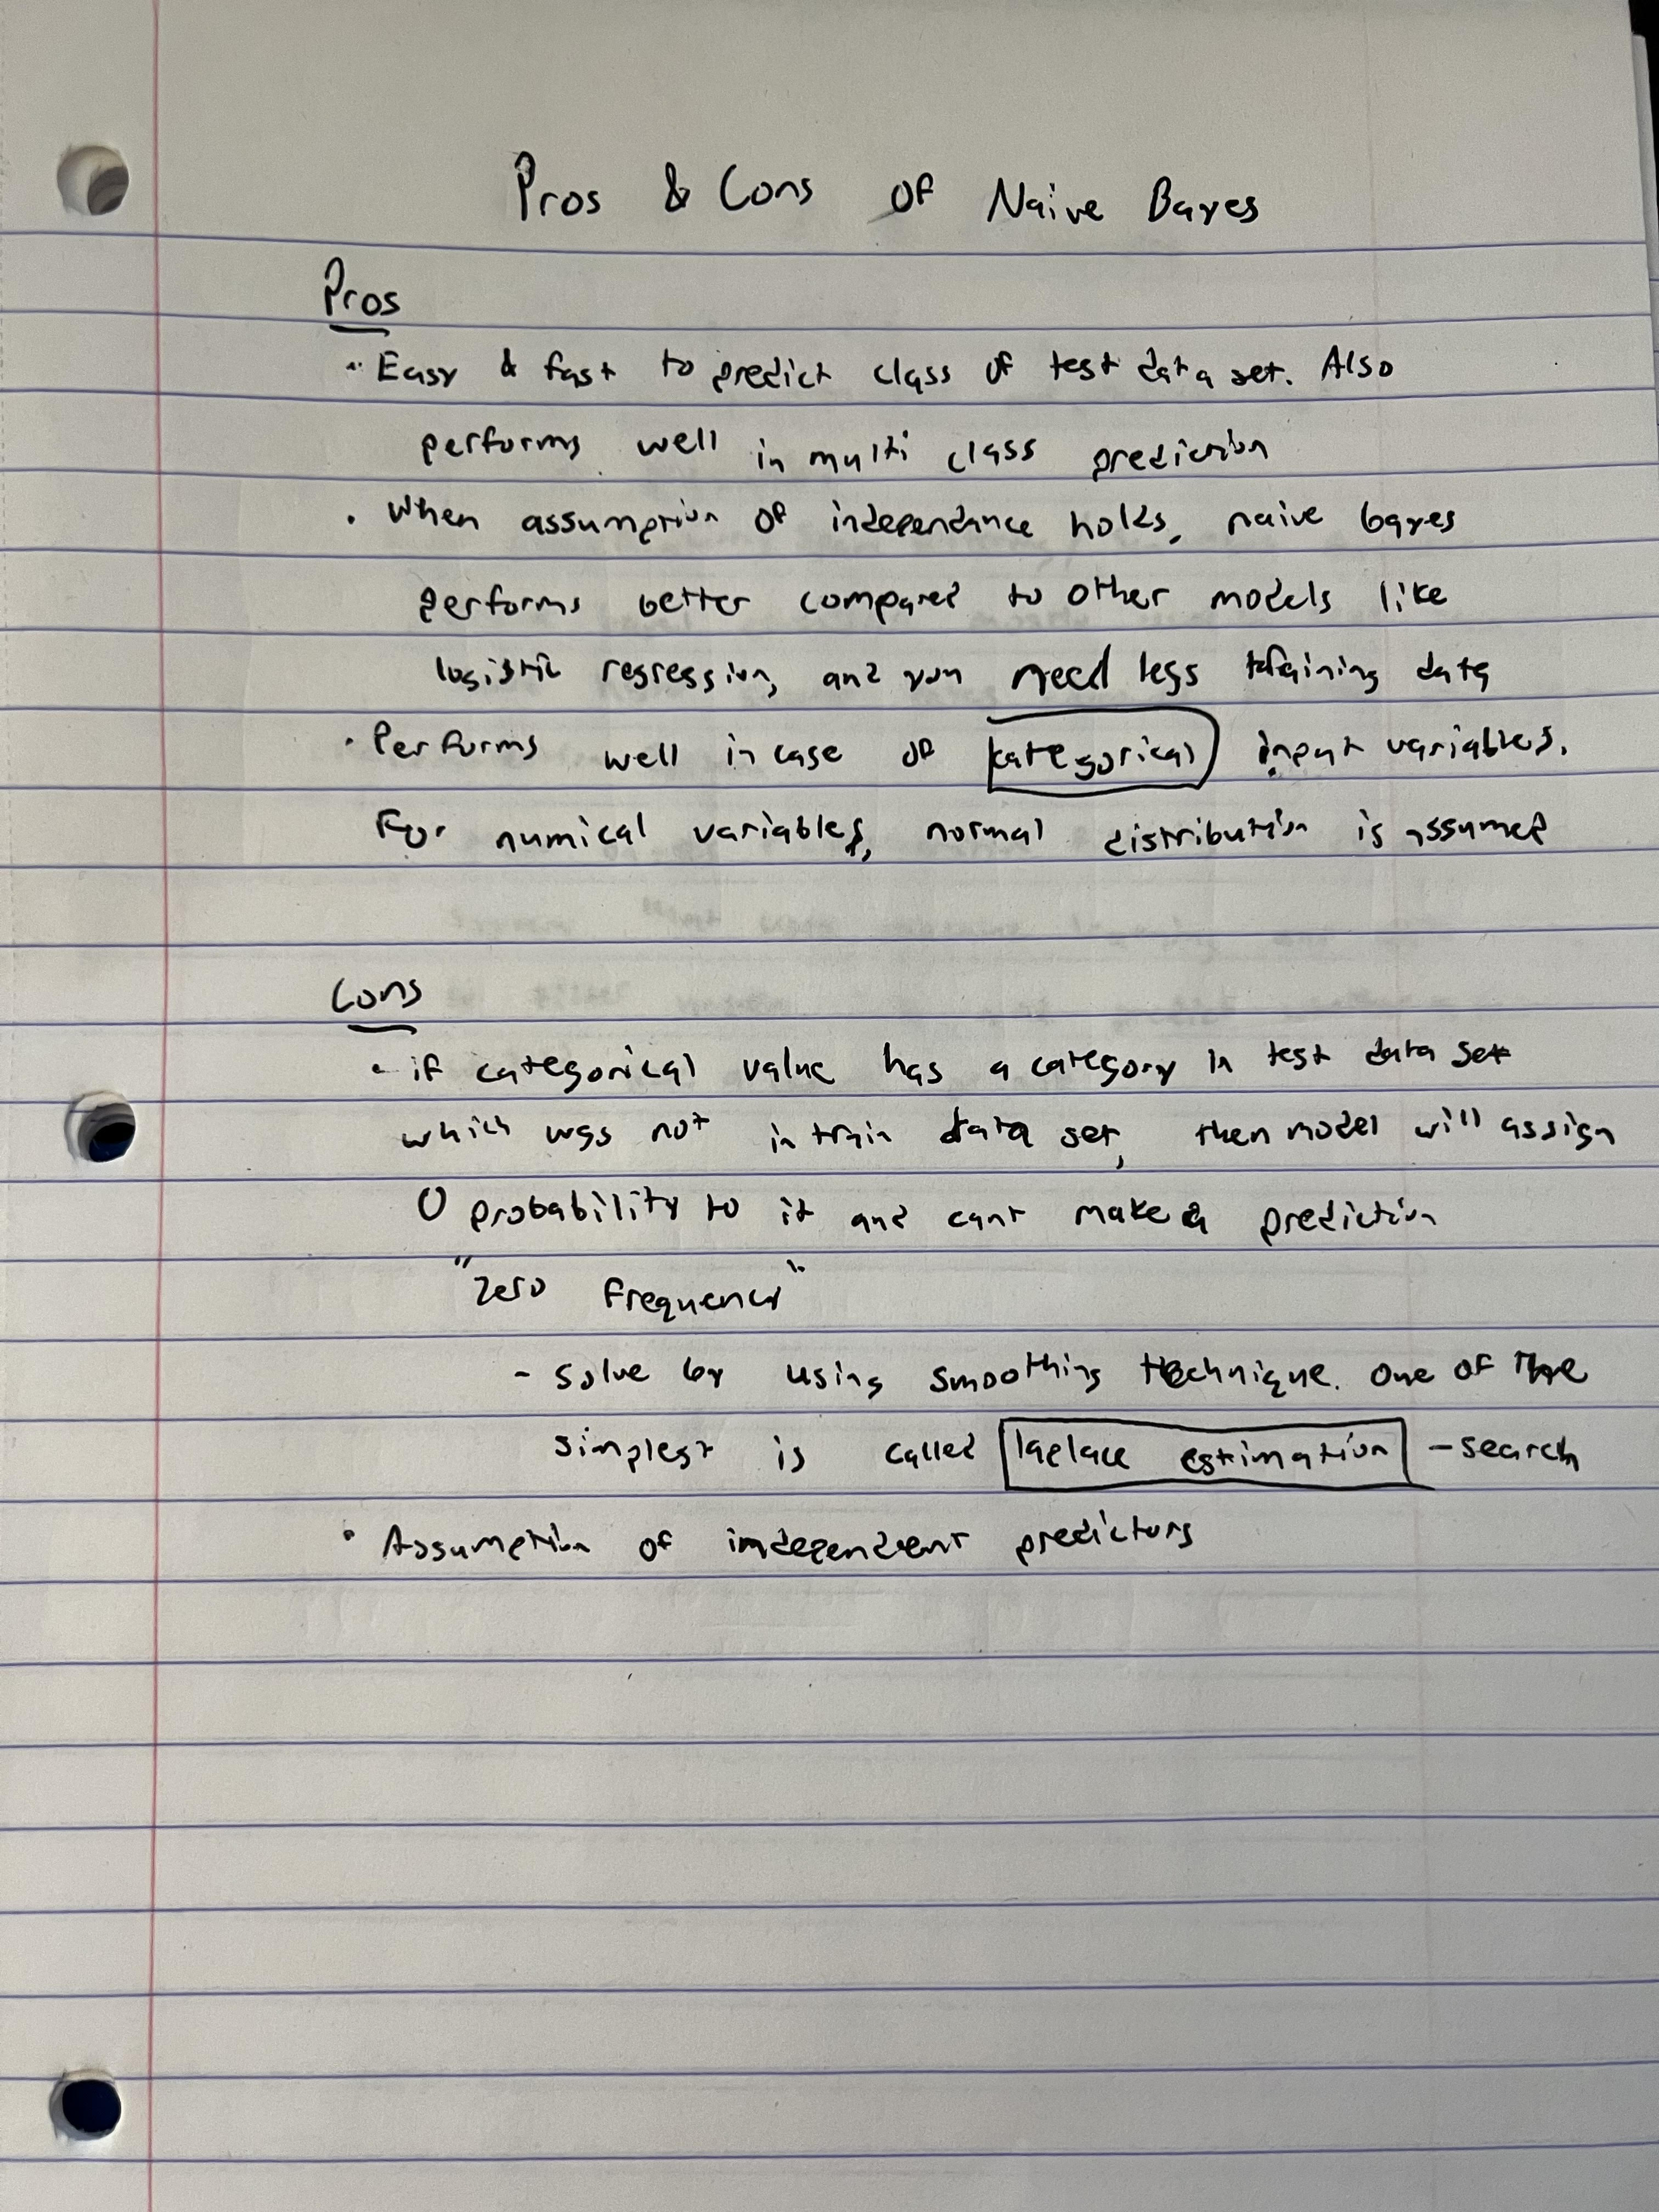 Pros & Cons of Naive Bayes
Pros
• Easy & fast to predict class of test data set. Also
performs well in multi class prediction
• When assumption of independance holds, naive bayes
performs better compared to other models like
logistic regression, and you need less training data
• Performs well in case of categorical input variables.
For numical variables, normal distribution is assumed
Cons
• if categorical value has a category in test data set
which was not in train data set, then model will assign
0 probability to it and cant make a prediction
"Zero Frequency"
- Solve by using smoothing technique. One of the
simplest is called laplace estimation - search
• Assumption of independent predictors